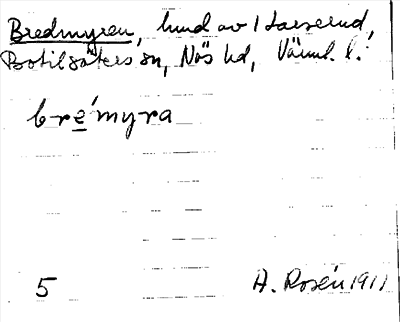 Bredmyren, hmd av 1 Larserud,
Botilsäters sn, Näs hd, Värml. l.
bre´myra
5 A. Rosén 1911